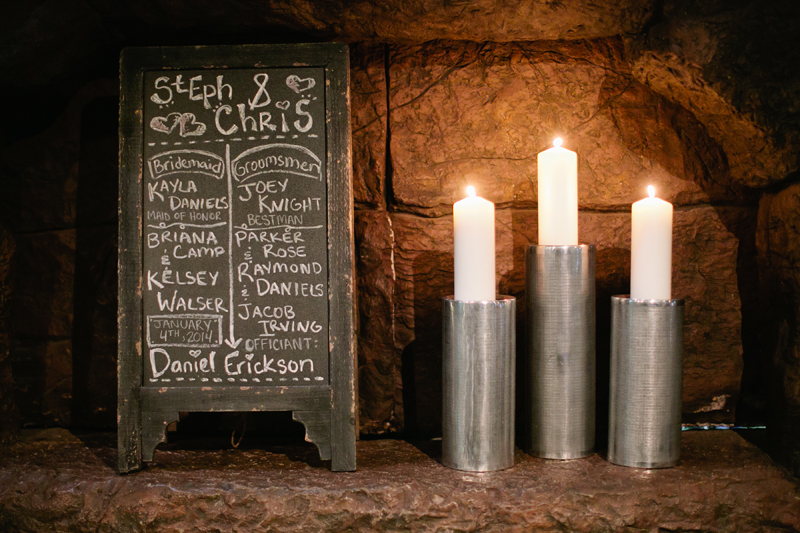 StEph &
Chris
Bridemaid
Kayla
Daniels
Maid of Honor
Briana
Camp
&
Kelsey
Walser
January
4th, 2014
Groomsmen
Joey
Knight
Bestman
Parker
& Rose
Raymond
& Daniels
Jacob
Irving
Officiant:
Daniel Erickson